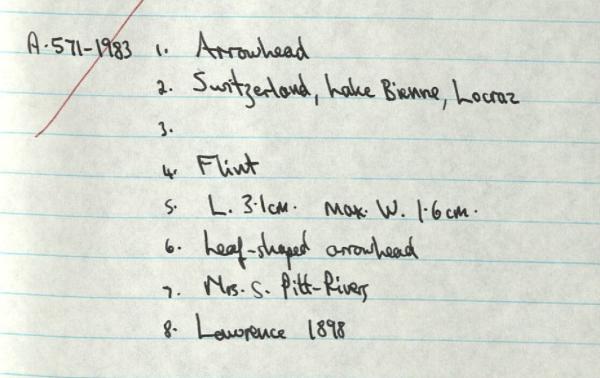 A.571-1983 1. Arrowhead
2. Switzerland, Lake Bienne, Locraz
3.
4. Flint
5. L. 3.1cm. Max. W. 1.6cm.
6. Leaf-shaped arrowhead
7. Mrs. S. Pitt-Rivers
8. Lawrence 1898